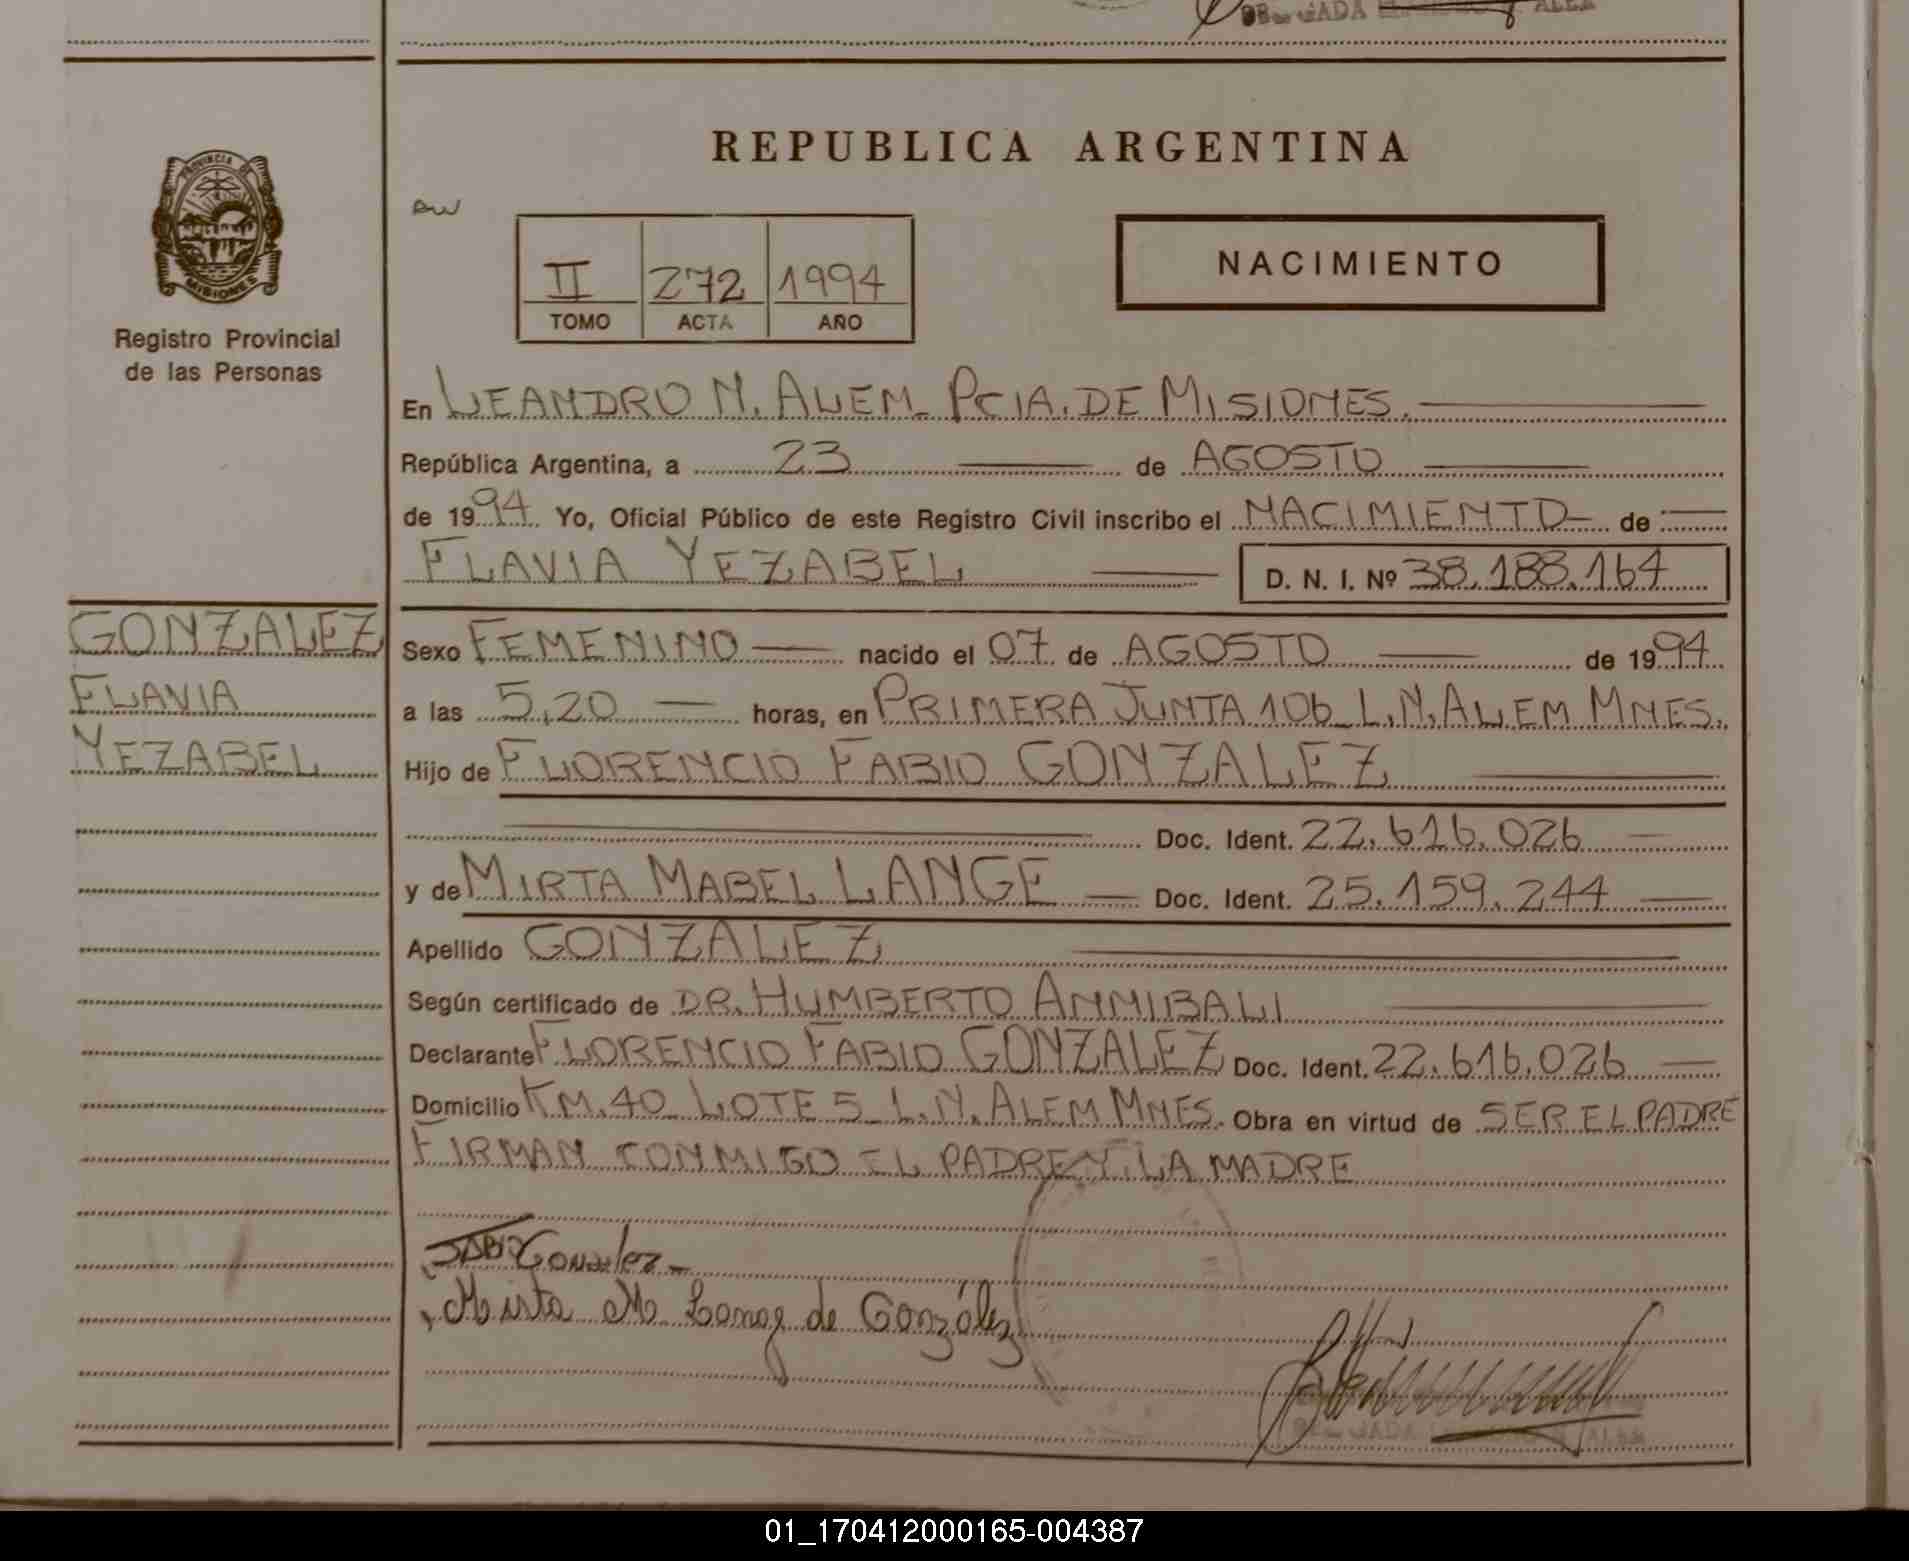 REPUBLICA ARGENTINA
PROVINCIA DE
MISIONES
Registro Provincial
de las Personas
II 272 1994
TOMO ACTA AÑO
NACIMIENTO
En LEANDRO N. ALEM - PCIA. DE MISIONES.
República Argentina, a 23 de AGOSTO
de 1994 Yo, Oficial Público de este Registro Civil inscribo el NACIMIENTO de
FLAVIA YEZABEL D. N. I. Nº 38.188.164
GONZALEZ
FLAVIA
YEZABEL
Sexo FEMENINO nacido el 07 de AGOSTO de 1994
a las 5,20 horas, en PRIMERA JUNTA 106 - L.N. ALEM MNES.
Hijo de FLORENCIO FABIO GONZALEZ
Doc. Ident. 22.616.026
y de MIRTA MABEL LANGE Doc. Ident. 25.159.244
Apellido GONZALEZ
Según certificado de DR. HUMBERTO ANNIBALI
Declarante FLORENCIO FABIO GONZALEZ Doc. Ident. 22.616.026
Domicilio KM. 40 - LOTE 5 - L.N. ALEM MNES. Obra en virtud de SER EL PADRE
FIRMAN CONMIGO EL PADRE Y LA MADRE
FABIO Gonzalez
Mirta M Lange de González
01_170412000165-004387